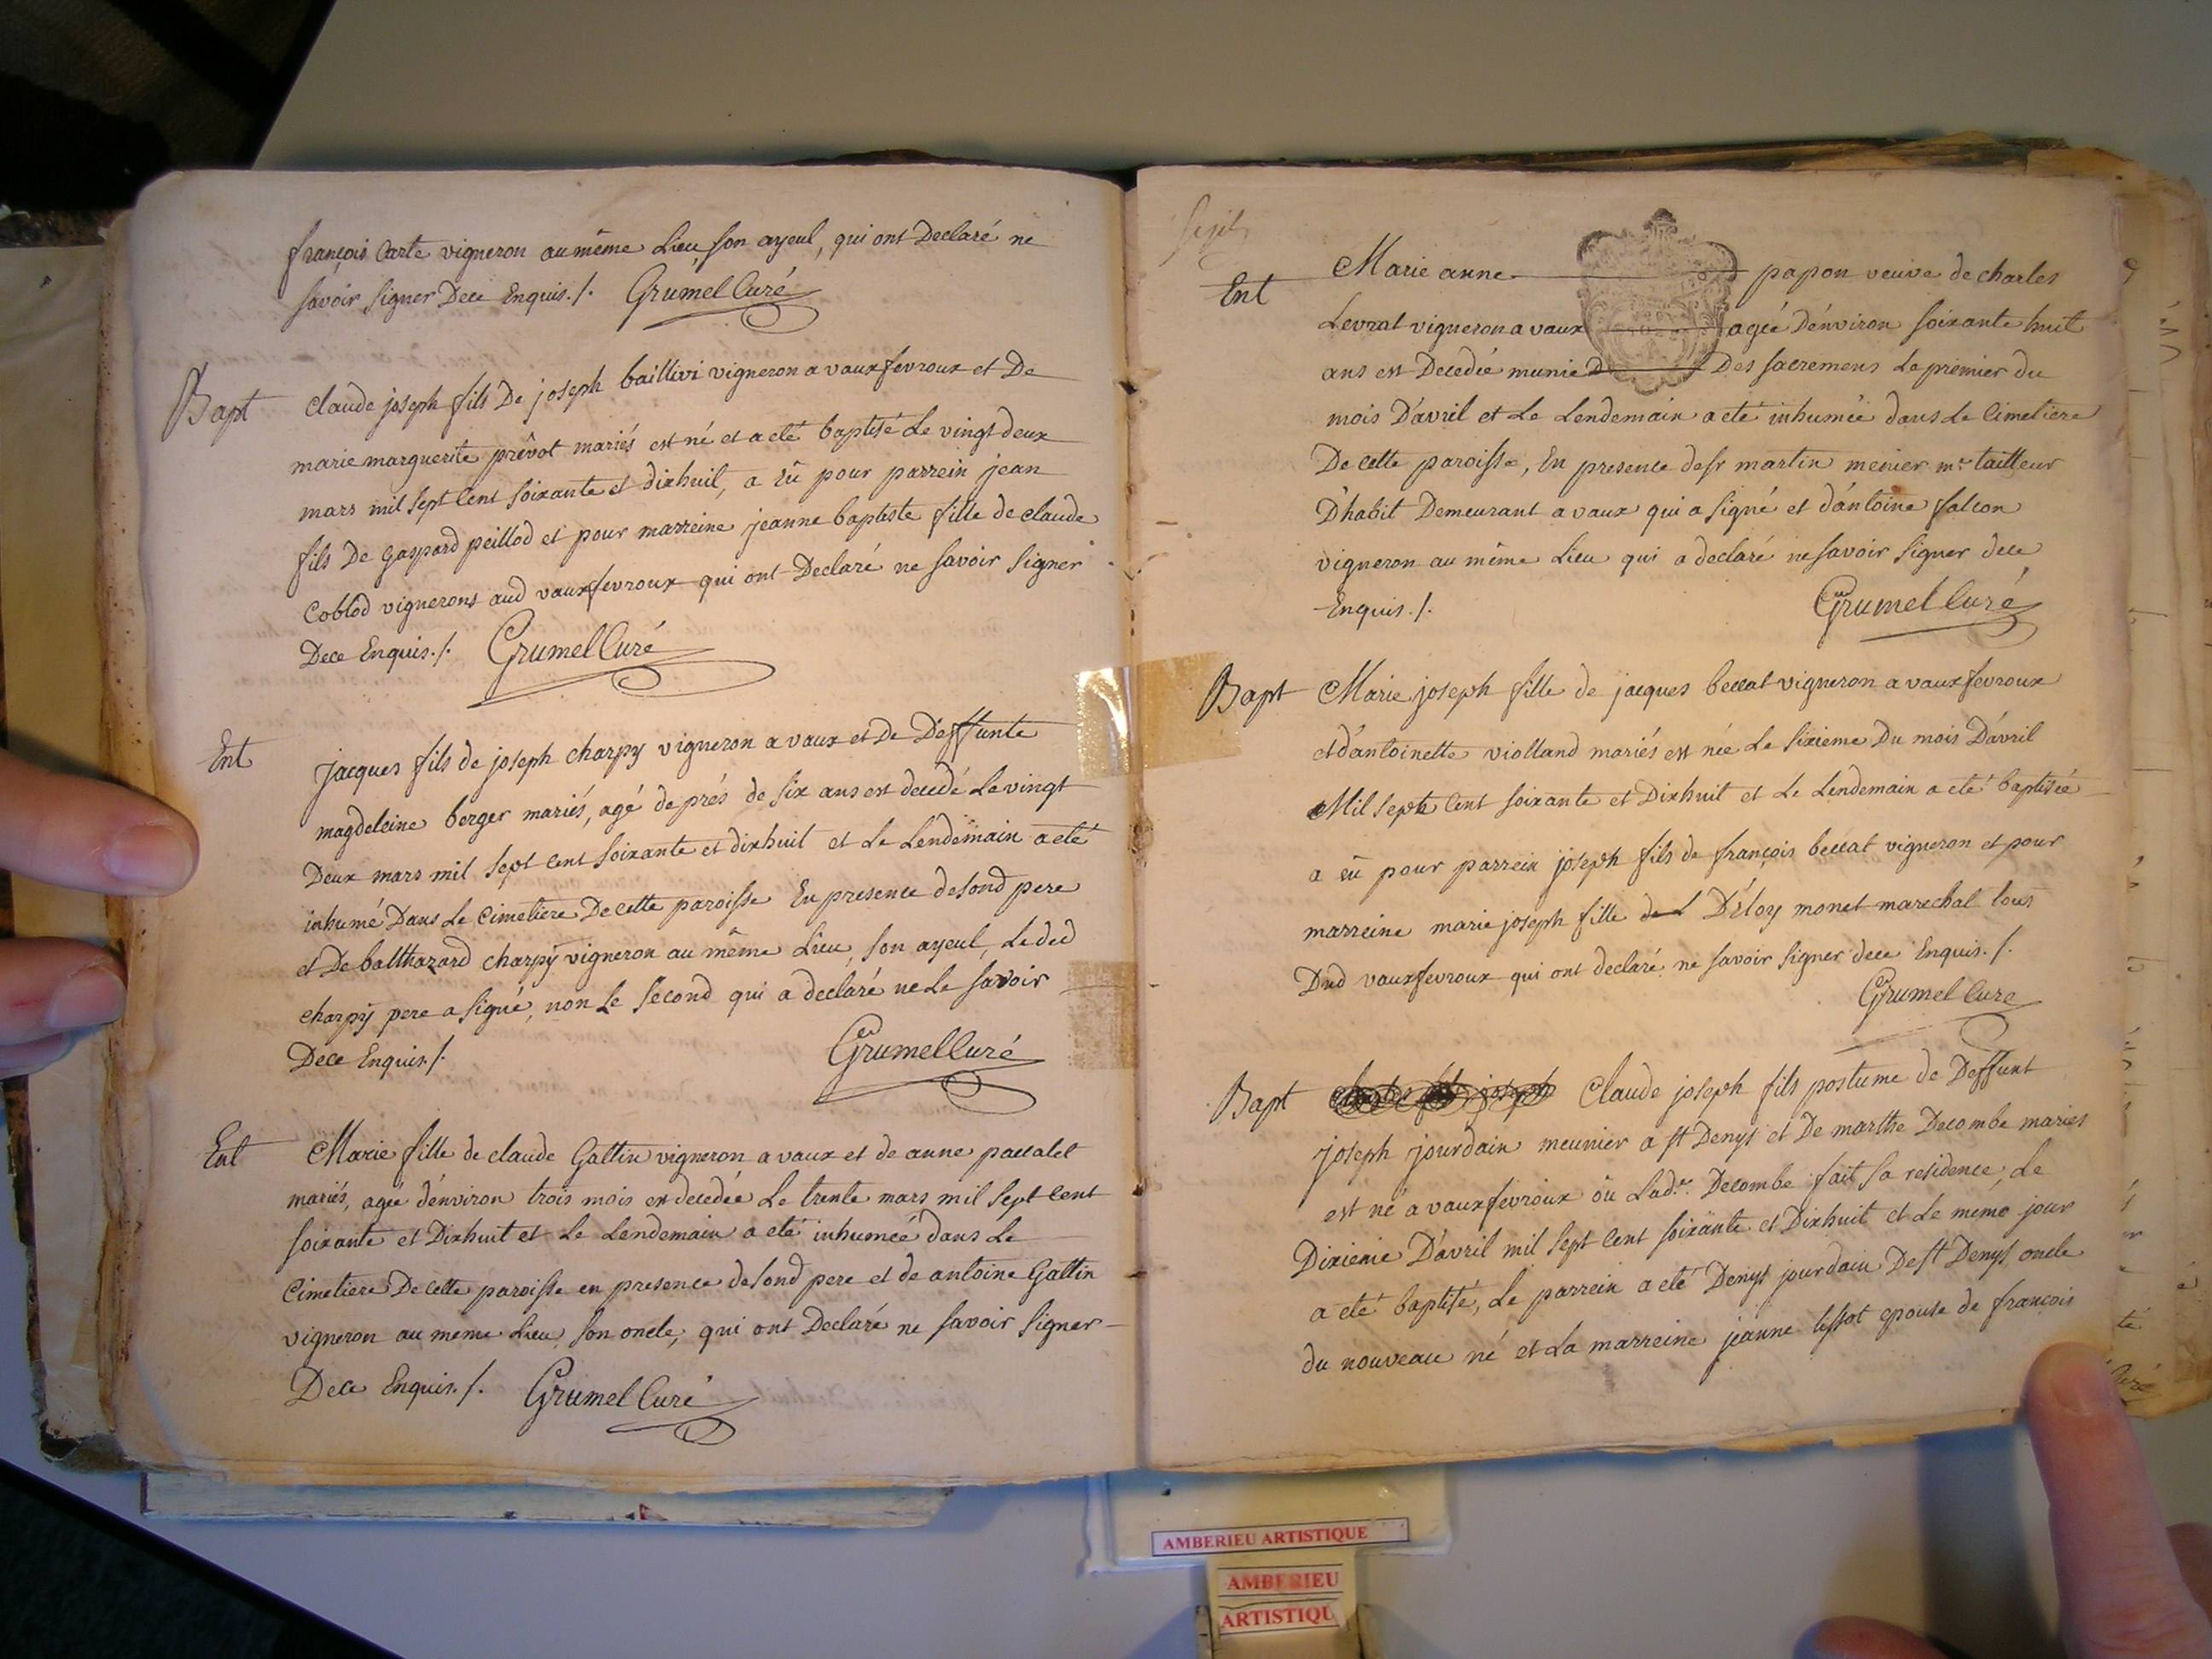 françois Carte vigneron au même Lieu, son ayeul, qui ont Declaré ne
savoir signer Dece Enquis./. Grumel Curé
Bapt claude joseph fils De joseph baillivi vigneron a vauxfevroux et De
marie marguerite prêvot mariés est né et a eté baptisé Le vingt deux
mars mil sept Cent soixante et dixhuit, a Eû pour parrein jean
fils De gaspard peillod et pour marreine jeanne baptiste fille de claude
Coblod vignerons aud vauxfevroux qui ont Declaré ne savoir signer
Dece Enquis./. Grumel Curé
Ent jacques fils de joseph charpy vigneron a vaux et De Deffunte
magdeleine berger mariés, agé de prés de six ans est decedé Le vingt
Deux mars mil sept cent soixante et dixhuit et Le Lendemain a eté
inhumé Dans Le Cimetiere De cette paroisse En presence desond pere
et De balthazard charpÿ vigneron au même Lieu, son ayeul, Le ded
charpÿ pere a signé, non Le second qui a declaré ne Le savoir
Dece Enquis./. Grumel Curé
Ent Marie fille de claude Gattin vigneron a vaux et de anne paccalet
mariés, agée d'énviron trois mois est decedée Le trente mars mil sept cent
soixante et Dixhuit et Le Lendemain a eté inhumée dans Le
Cimetiere De cette paroisse en presence desond pere et de antoine Gattin
vigneron au meme Lieu, son oncle, qui ont Declaré ne savoir signer
Dece Enquis./. Grumel Curé
sept
Ent Marie anne papon veuve de charles
Levrat vigneron a vaux agée D'énviron soixante huit
ans est Decedée munie D Des sacremens Le premier du
mois D'avril et Le Lendemain a eté inhumée dans Le Cimetiere
De cette paroisse, En presence de sr martin menier mre tailleur
D'habit Demeurant a vaux qui a signé et d'antoine falcon
vigneron au même Lieu qui a declaré ne savoir signer dece
Enquis./. Grumel Curé
Bapt Marie joseph fille de jacques beccat vigneron a vauxfevroux
et d'antoinette violland mariés est née Le sixieme Du mois D'avril
Mil sept Cent soixante et Dixhuit et Le Lendemain a eté baptisée
a eû pour parrein joseph fils de françois beccat vigneron et pour
marreine marie joseph fille de D'éloy monet marechal tous
Dud vauxfevroux qui ont declaré ne savoir signer dece Enquis./.
Grumel Cure
Bapt joseph Claude joseph fils postume de Deffunt
joseph jourdain meunier a st Denys et De marthe Decombe mariés
est né a vauxfevroux oû Lad.e Decombe fait sa residence, Le
Dixieme D'avril mil sept Cent soixante et Dixhuit et Le meme jour
a eté baptisé, Le parrein a eté Denys jourdain De st Denys oncle
du nouveau né et La marreine jeanne epouse de françois
AMBERIEU ARTISTIQUE
AMBERIEU
ARTISTIQU